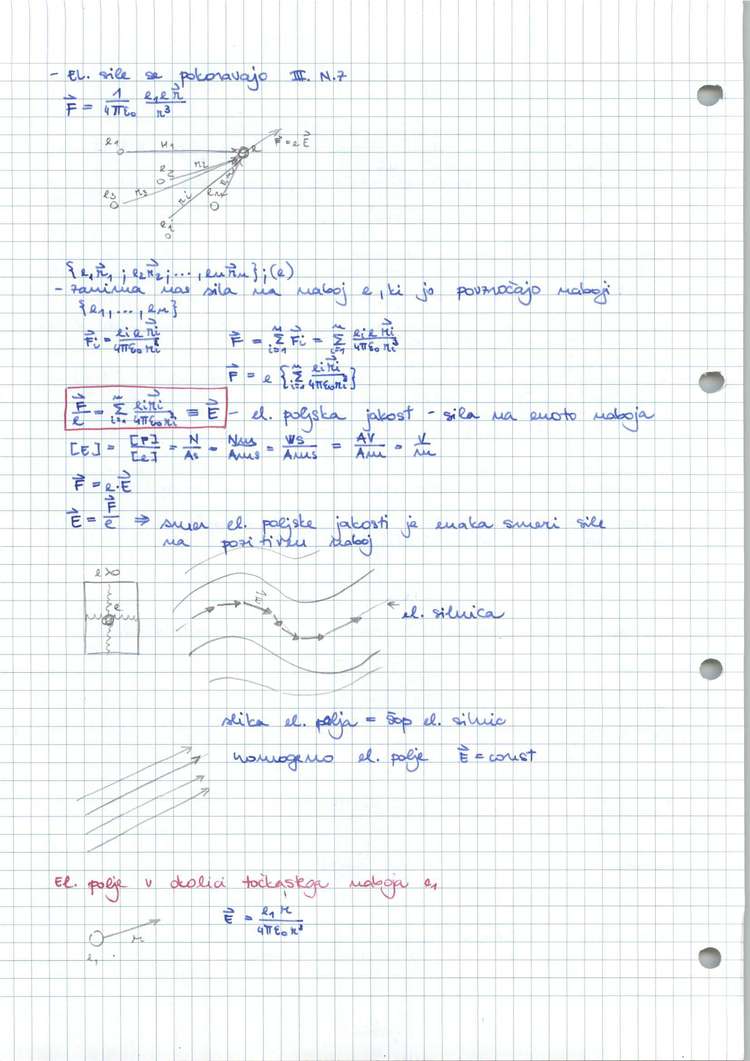 - EL. sile se pokoravajo III. N.Z
F⃗ = 1/4πε₀ e₁e r⃗/r³
e₁ r₁ e F⃗ = e E⃗
e₂ r₂
e₃ r₃ rᵢ eₙ rₙ
eᵢ
{e₁r⃗₁ ; e₂r⃗₂ ; ... , eₙr⃗ₙ} ; (e)
- Zanima nas sila na naboj e, ki jo povzročajo naboji
{e₁, ..., eₙ}
F⃗ᵢ = eᵢe r⃗ᵢ/4πε₀rᵢ³ F⃗ = Σᵢ₌₁ⁿ F⃗ᵢ = Σᵢ₌₁ⁿ eᵢe r⃗ᵢ/4πε₀rᵢ³
F⃗ = e {Σᵢ₌₁ⁿ eᵢr⃗ᵢ/4πε₀rᵢ³}
F⃗/e = Σᵢ₌₁ⁿ eᵢr⃗ᵢ/4πε₀rᵢ³ ≡ E⃗ - el. poljska jakost - sila na enoto naboja
[E] = [F]/[e] = N/As = Nms/Amss = Ws/Ams = AV/Am = V/m
F⃗ = e·E⃗
E⃗ = F⃗/e ⇒ smer el. poljske jakosti je enaka smeri sile
na pozitiven naboj
e>0
e E⃗ ← el. silnica
slika el. polja = šop el. silnic
homogeno el. polje E⃗ = const
El. polje v okolici točkastega naboja e₁
E⃗ = e₁r⃗/4πε₀r³
r
e₁